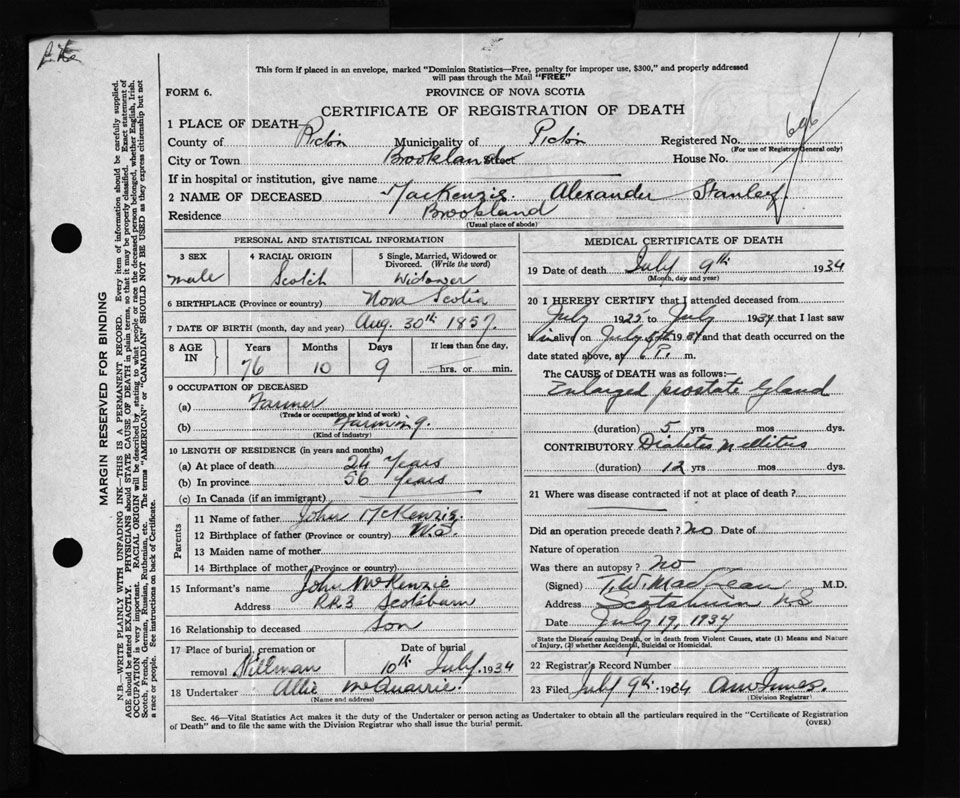 This form if placed in an envelope, marked "Dominion Statistics—Free, penalty for improper use, $300," and properly addressed
will pass through the Mail "FREE"
FORM 6.
PROVINCE OF NOVA SCOTIA
CERTIFICATE OF REGISTRATION OF DEATH
1 PLACE OF DEATH—
County of Pictou Municipality of Pictou Registered No. 696
(For use of Registrar General only)
City or Town Brookland Street House No.
If in hospital or institution, give name
2 NAME OF DECEASED MacKenzie Alexander Stanley
Residence Brookland
(Usual place of abode)
MARGIN RESERVED FOR BINDING
N.B.—WRITE PLAINLY WITH UNFADING INK—THIS IS A PERMANENT RECORD. Every item of information should be carefully supplied.
AGE should be stated EXACTLY. PHYSICIANS should STATE CAUSE OF DEATH in plain terms, so that it may be properly classified. Exact statement of
OCCUPATION is very important. RACIAL ORIGIN will be described by stating to what people or race the deceased person belonged, whether English, Irish,
Scotch, French, German, Russian, Ruthenian, etc. The terms "AMERICAN" or "CANADIAN" SHOULD NOT BE USED as they express citizenship but not
a race or people. See instructions on back of Certificate.
PERSONAL AND STATISTICAL INFORMATION
3 SEX
male
4 RACIAL ORIGIN
Scotch
5 Single, Married, Widowed or
Divorced. (Write the word)
Widower
6 BIRTHPLACE (Province or country) Nova Scotia
7 DATE OF BIRTH (month, day and year) Aug. 30th 1857.
8 AGE
IN
Years Months Days If less than one day,
76 10 9 hrs. or min.
9 OCCUPATION OF DECEASED
(a) Farmer
(Trade or occupation or kind of work)
(b) Farming.
(Kind of industry)
10 LENGTH OF RESIDENCE (in years and months)
(a) At place of death 24 Years
(b) In province 56 Years
(c) In Canada (if an immigrant)
Parents
11 Name of father John McKenzie.
12 Birthplace of father (Province or country) N.S.
13 Maiden name of mother
14 Birthplace of mother (Province or country)
15 Informant's name John McKenzie
Address RR3 Scotsburn
16 Relationship to deceased Son
17 Place of burial, cremation or
removal Millman
Date of burial
10th July 1934
18 Undertaker Allie McQuarrie.
(Name and address)
MEDICAL CERTIFICATE OF DEATH
19 Date of death July 9th 1934
(Month, day and year)
20 I HEREBY CERTIFY that I attended deceased from
July 1922 to July 1934 that I last saw
him alive on July 1934 and that death occurred on the
date stated above, at 6 P. m.
The CAUSE of DEATH was as follows:—
Enlarged prostate Gland
(duration) 5 yrs mos dys.
CONTRIBUTORY Diabetes Mellitus
(duration) 12 yrs mos dys.
21 Where was disease contracted if not at place of death?
Did an operation precede death? no Date of
Nature of operation
Was there an autopsy? no
(Signed) T.W. MacLean M.D.
Address Scotsburn NS
Date July 19, 1934
State the Disease causing Death, or in death from Violent Causes, state (1) Means and Nature
of Injury, (2) whether Accidental, Suicidal or Homicidal.
22 Registrar's Record Number
23 Filed July 9th 1934 Innes.
(Division Registrar)
Sec. 46—Vital Statistics Act makes it the duty of the Undertaker or person acting as Undertaker to obtain all the particulars required in the "Certificate of Registration
of Death" and to file the same with the Division Registrar who shall issue the burial permit.
(OVER)